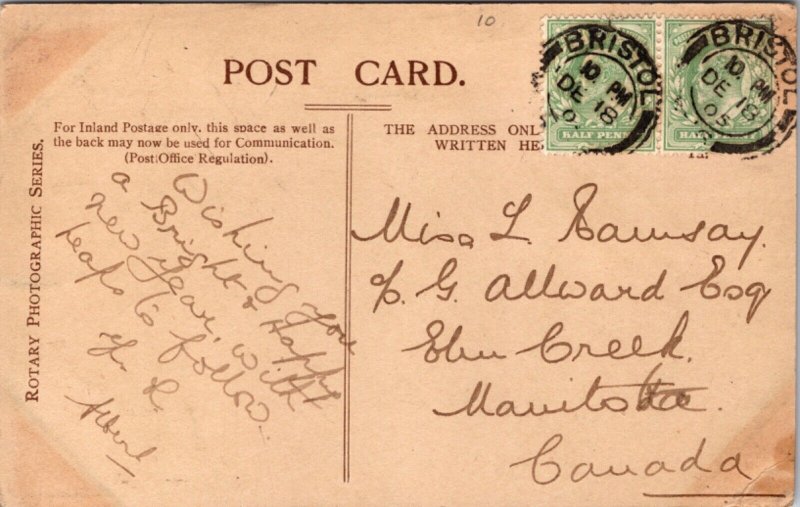 10
POST CARD.
For Inland Postage only, this space as well as
the back may now be used for Communication.
(Post Office Regulation).
THE ADDRESS ONL
WRITTEN HE
BRISTOL
10 PM
DE 18
05
HALF PENN
BRISTOL
10 PM
DE 18
05
HALF
ROTARY PHOTOGRAPHIC SERIES.
Wishing you
a Bright & Happy
new year, with
heaps to follow.
Albert
Miss L. Ramsay.
G. Allward Esq
Elm Creek.
Manitoba.
Canada